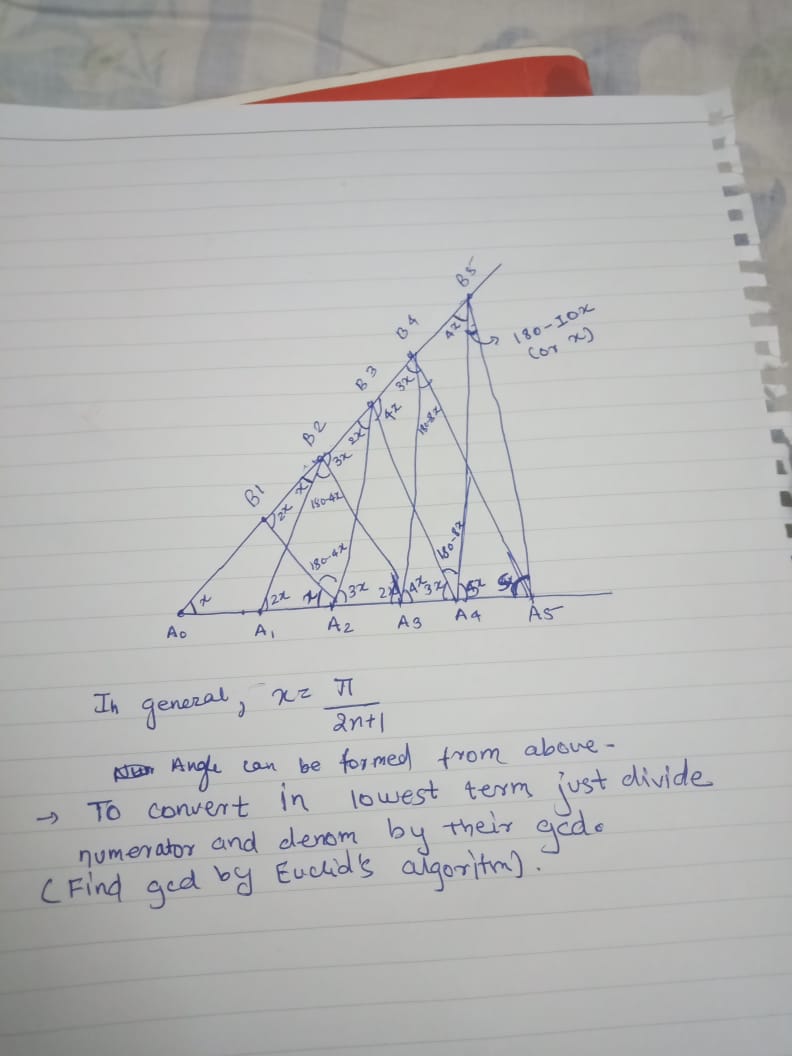 B5
180-10x
(or x)
4x
B4
3x
B3
4x
180-8x
2x
B2
3x
x
180-4x
B1
2x
180-4x
180-8x
x
2x
x
3x
2x
4x
3x
5x
5x
A0
A1
A2
A3
A4
A5
In general, x= π
2n+1
Angle can be formed from above-
→ To convert in lowest term just divide
numerator and denom by their gcd.
(Find gcd by Euclid's algoritm).